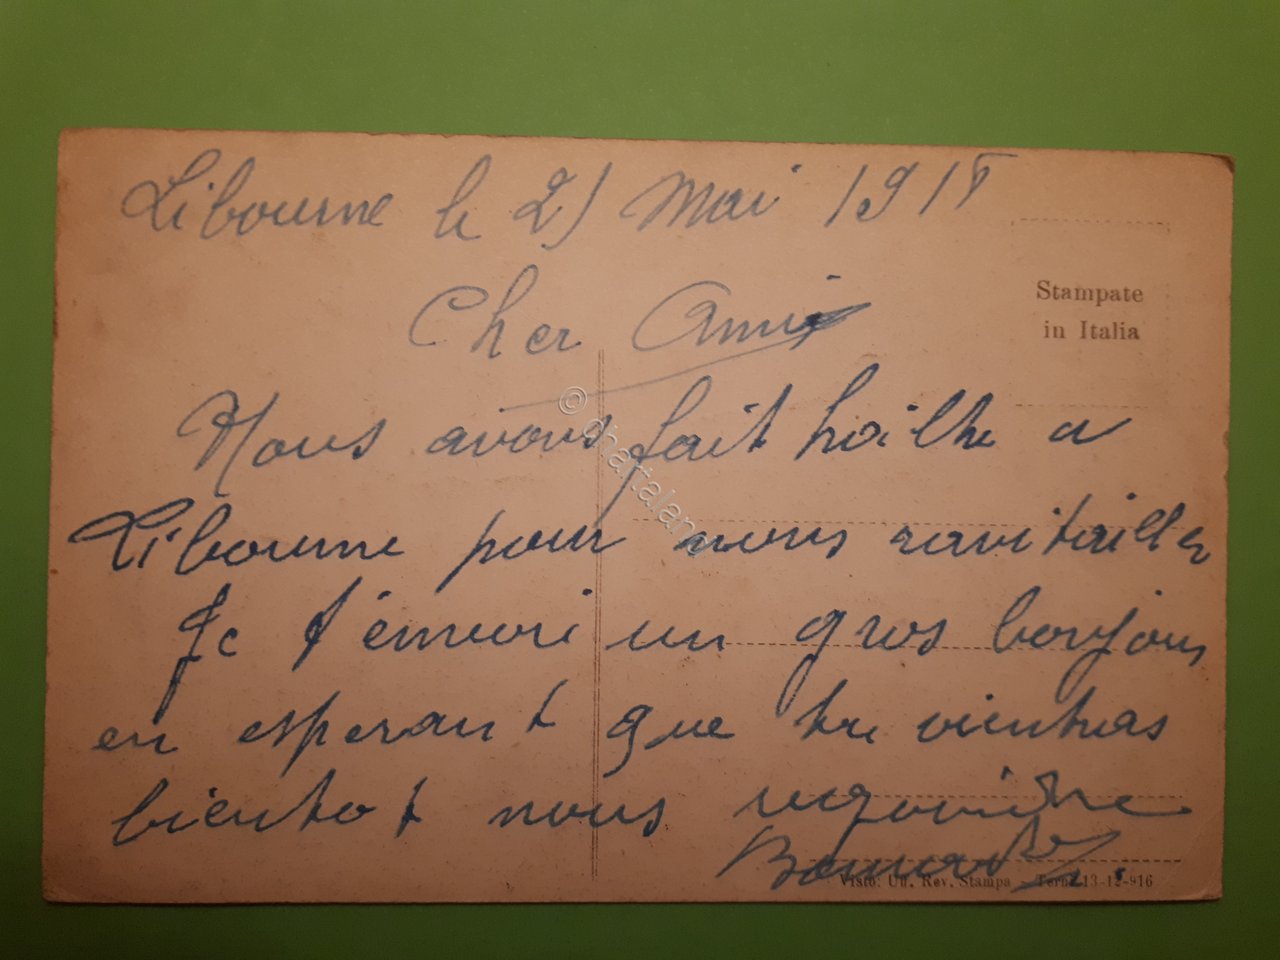 Libourne le 21 Mai 191
Cher Ami
Stampate
in Italia
Nous avons fait halte a
Libourne pour nous ravitailler
Je t'envoie un gros bonjour
en esperant que tu viendras
bientot nous rejoindre
Visto: Uff. Rev. Stampa - Terni 13-12-916
© delcartalano